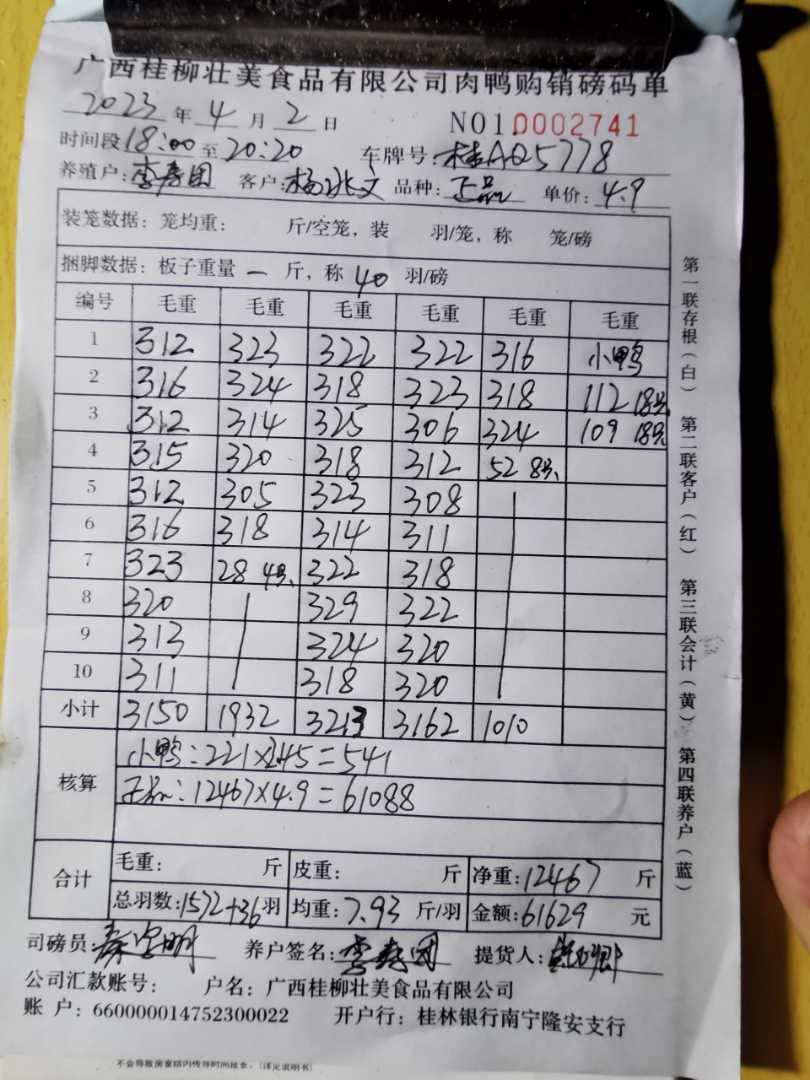 广西桂柳壮美食品有限公司肉鸭购销磅码单
2023 年 4 月 2 日 NO1 0002741
时间段 18:00 至 20:20 车牌号: 桂AQ5778
养殖户: 李寿团 客户: 杨兆文 品种: 正品 单价: 4.9
装笼数据: 笼均重: 斤/空笼, 装 羽/笼, 称 笼/磅
捆脚数据: 板子重量 一 斤, 称 40 羽/磅
编号 毛重 毛重 毛重 毛重 毛重 毛重
1 312 323 322 322 316 小鸭
2 316 324 318 323 318 112 18只
3 312 314 325 306 324 109 18只
4 315 320 318 312 52 8只
5 312 305 323 308
6 316 318 314 311
7 323 28 4只 322 318
8 320 329 322
9 313 324 320
10 311 318 320
小计 3150 1932 3213 3162 1010
核算
小鸭: 221×2.45=541
正品: 12467×4.9=61088
合计 毛重: 斤 皮重: 斤 净重: 12467 斤
总羽数: 1572+36 羽 均重: 7.93 斤/羽 金额: 61629 元
司磅员: 养户签名: 李寿团 提货人:
公司汇款账号: 户名: 广西桂柳壮美食品有限公司
账 户: 660000014752300022 开户行: 桂林银行南宁隆安支行
第一联存根(白) 第二联客户(红) 第三联会计(黄) 第四联养户(蓝)